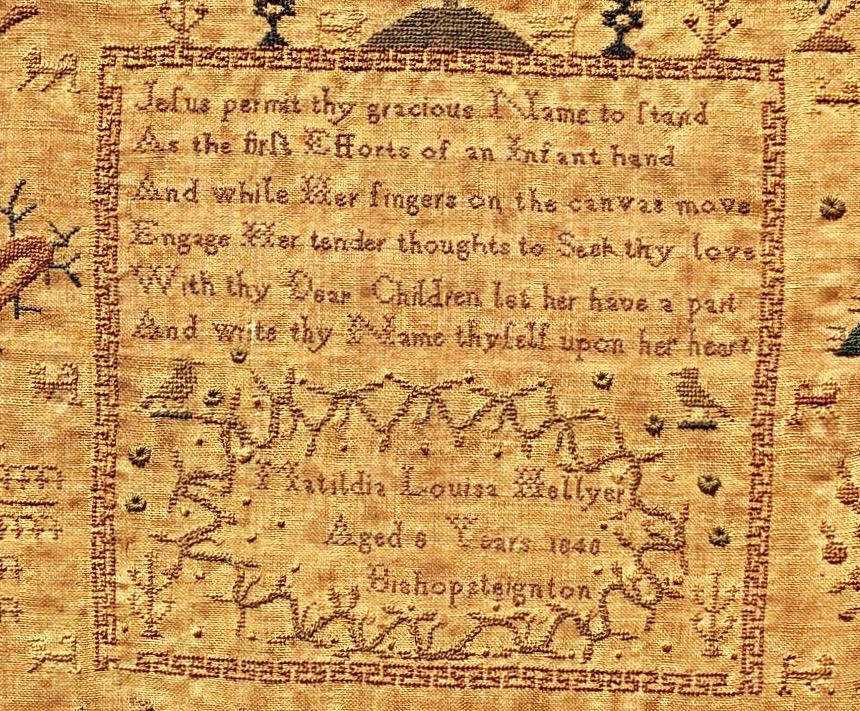 Jeſus permit thy gracious Name to ſtand
As the firſt Efforts of an Infant hand
And while Her fingers on the canvas move
Engage Her tender thoughts to Seek thy love
With thy Dear Children let her have a part
And write thy Name thyſelf upon her heart
Matildia Louisa Hellyer
Aged 8 Years 1840
Bishopsteignton